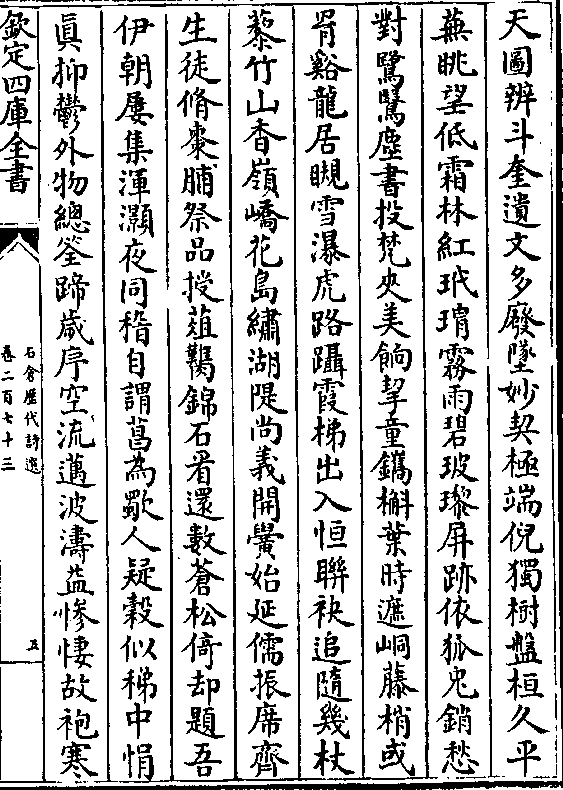 天圖辨斗奎遺文多廢墜妙契極端倪獨樹盤桓久平
蕪眺望低霜林紅玳瑁霧雨碧玻瓈屏跡依狐兔銷愁
對鷺鷖塵書投梵夾美餉挈童鑴槲葉時遮峒藤梢或
罥谿龍居瞡雪瀑虎路躡霞梯出入恒聯袂追隨幾杖
藜竹山香嶺嶠花島繡湖隄尚義開黌始延儒振席齊
生徒脩棗脯祭品授葅鷊錦石看還數蒼松倚却題吾
伊朝屢集渾灝夜同稽自謂菖為歜人疑榖似稊中悁
真抑鬱外物總筌蹄歲序空流邁波濤益慘悽故袍寒
欽定四庫全書
石倉歷代詩選
卷二百七十三
五